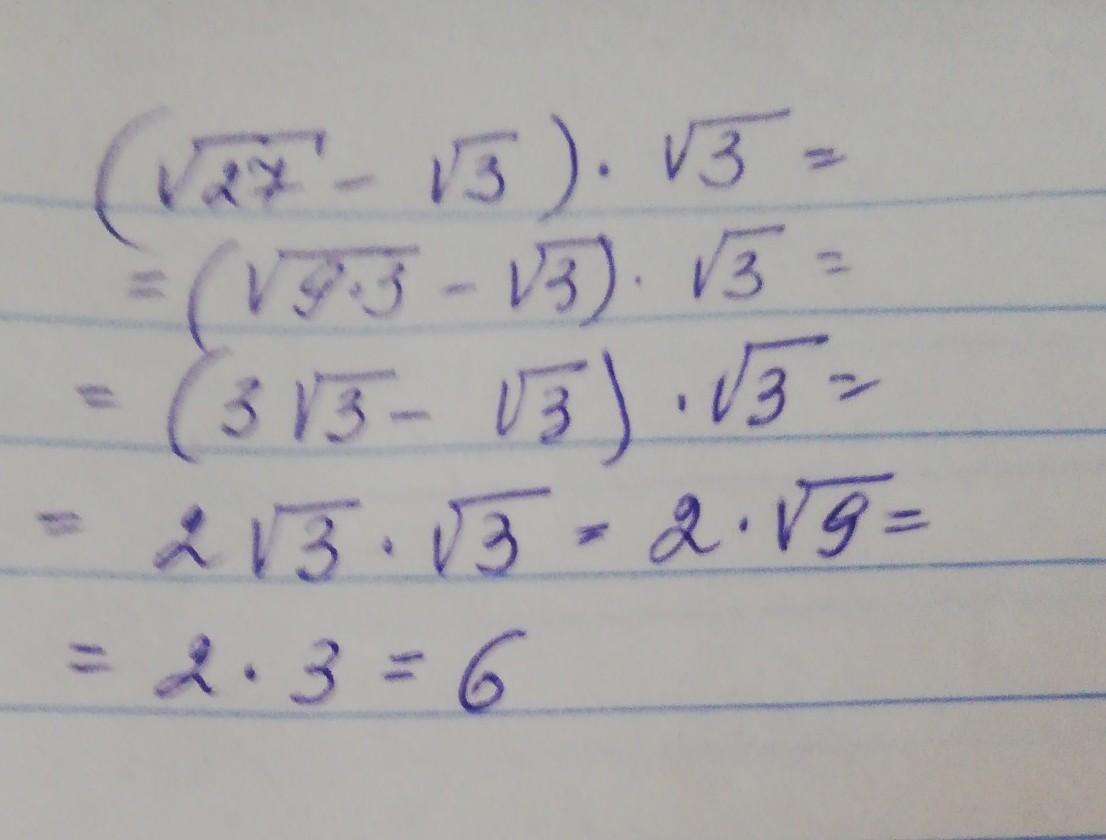 (√27 - √3) · √3 =
= (√9·3 - √3) · √3 =
= (3√3 - √3) · √3 =
= 2√3 · √3 = 2 · √9 =
= 2 · 3 = 6